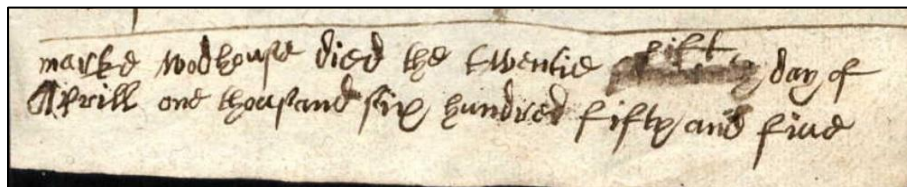 marke wodhouse died the twentie fift day of
Aprill one thousand six hundred fifty and five